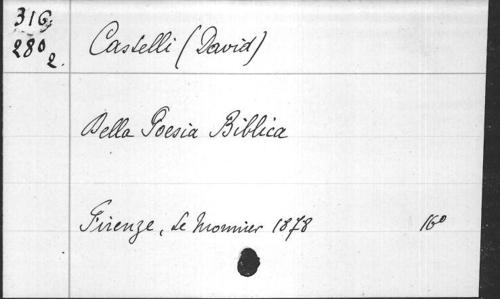 316
280 2.
Castelli (David)
Della Poesia Biblica
Firenze, Le Monnier 1878 16º